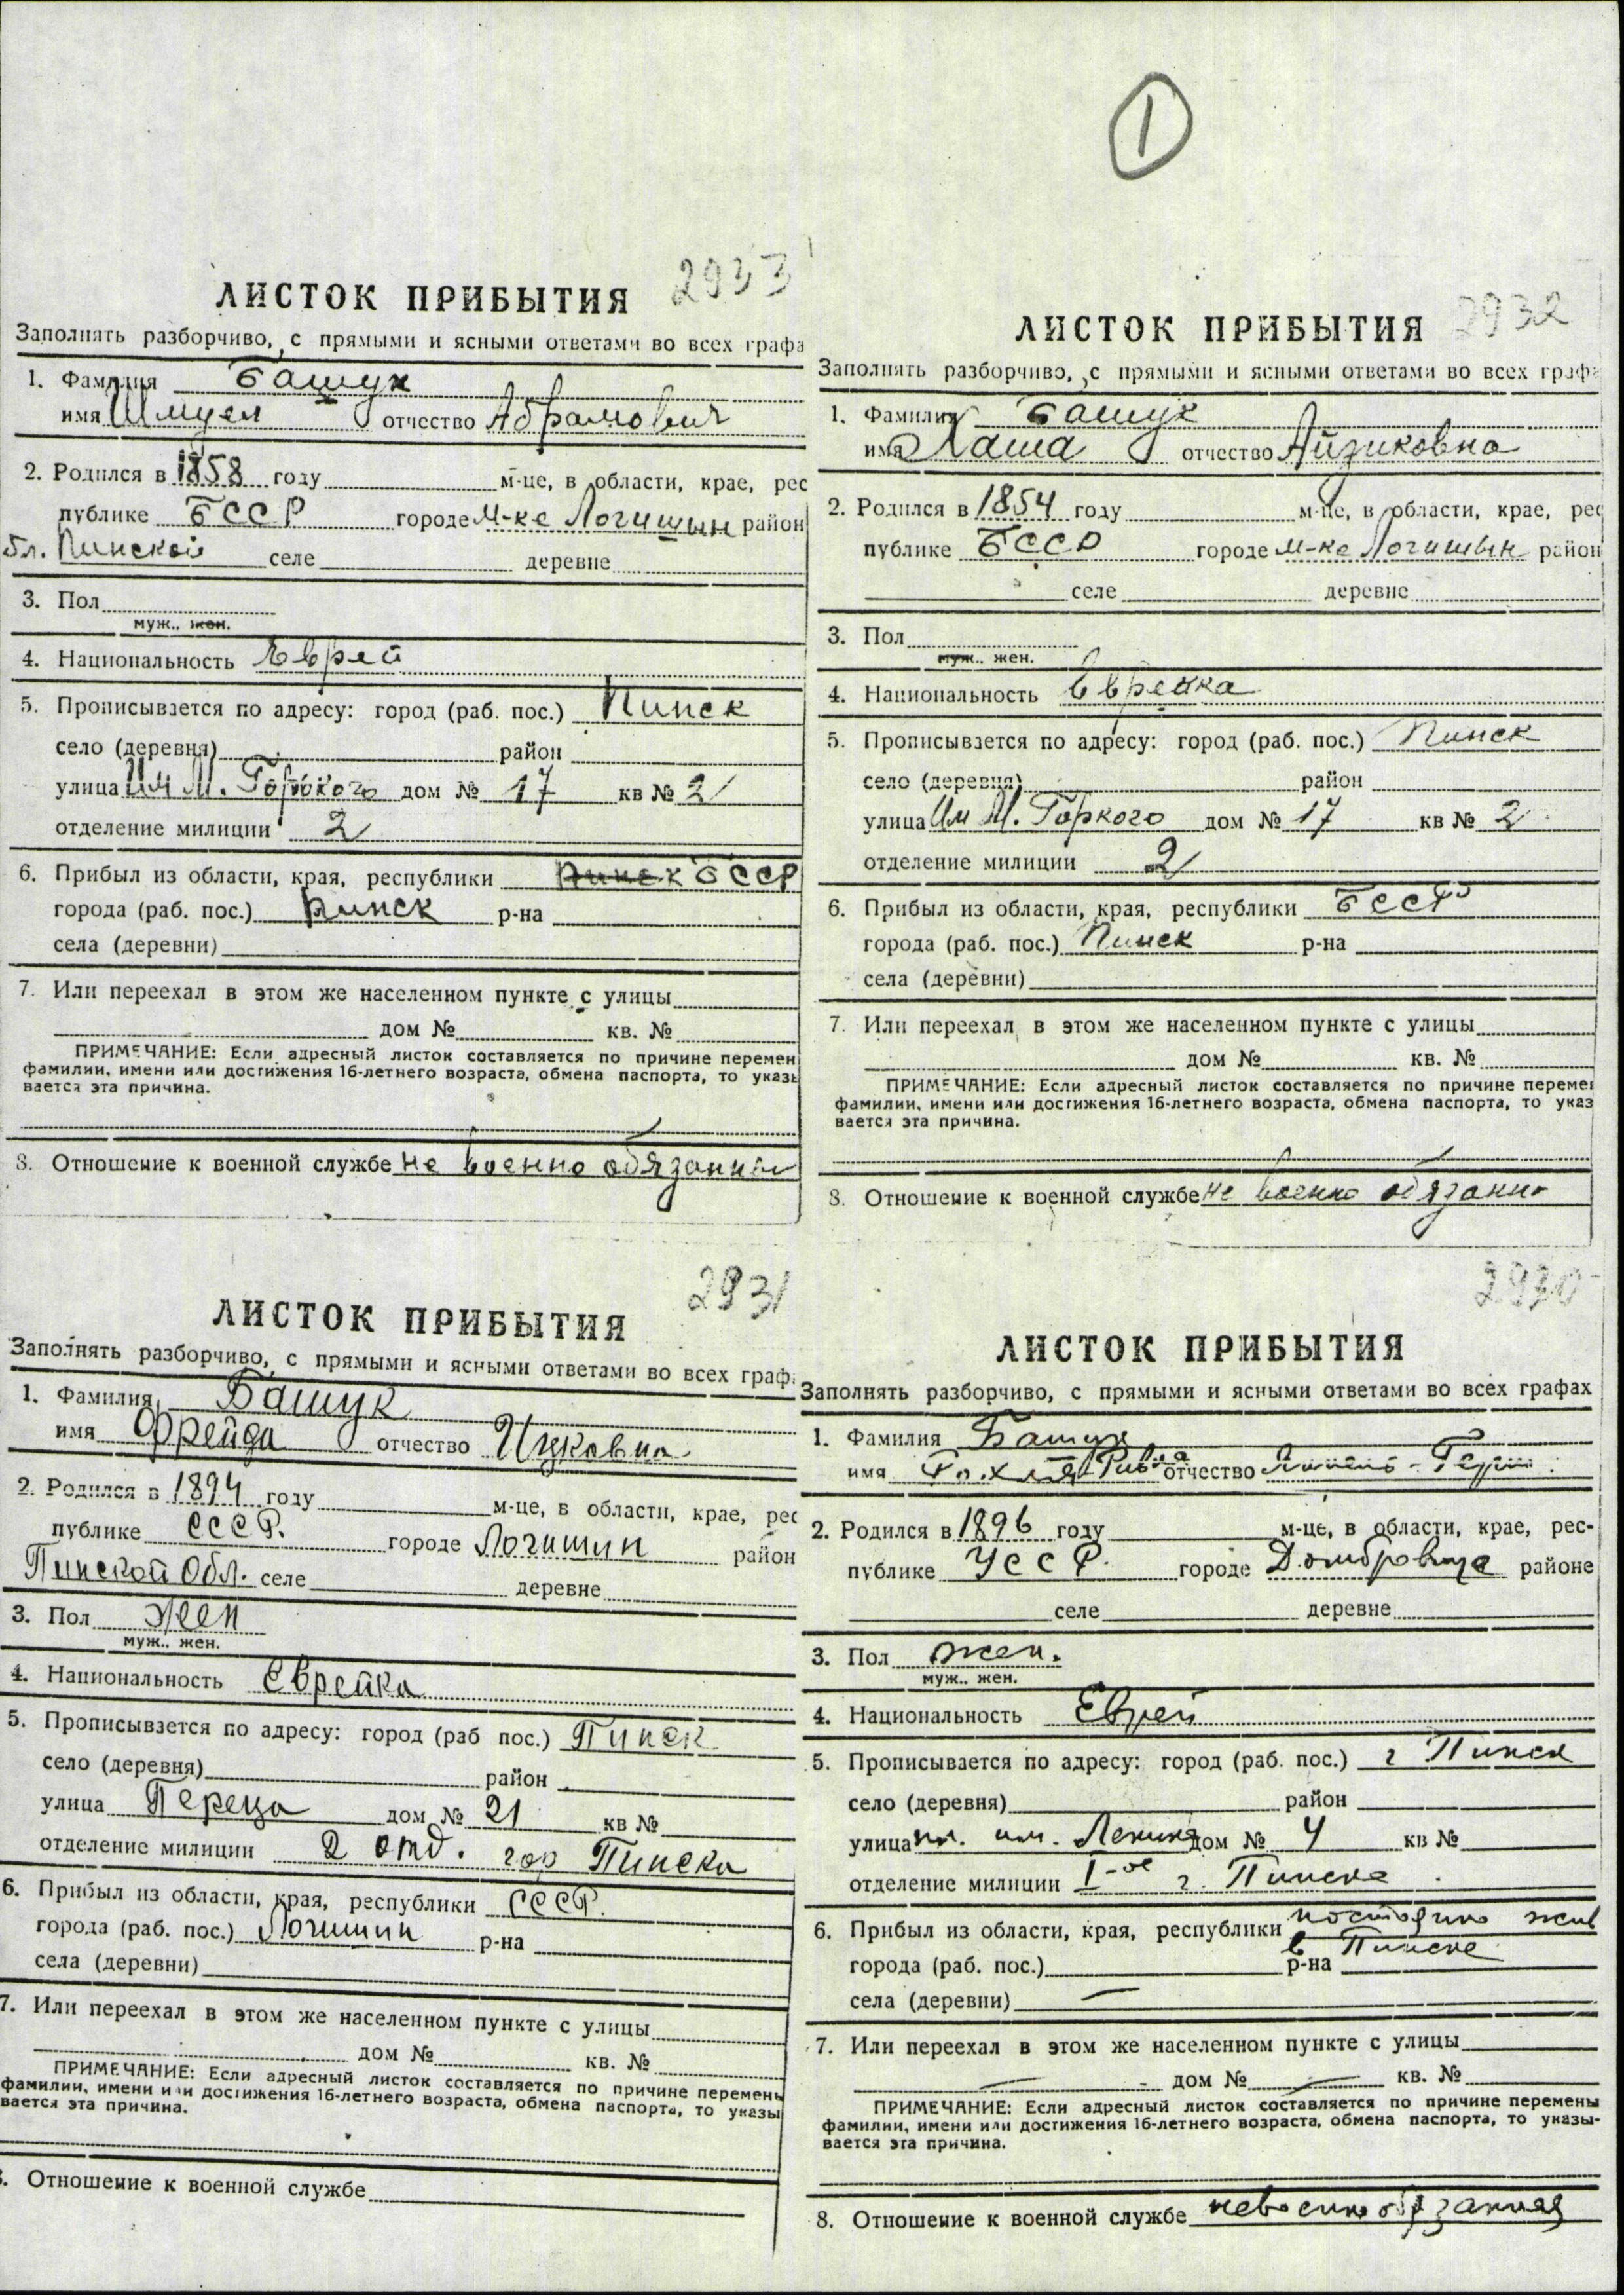 1
2933
ЛИСТОК ПРИБЫТИЯ
Заполнять разборчиво, с прямыми и ясными ответами во всех графа
1. Фамилия Башук
имя Шмуел отчество Абрамович
2. Родился в 1858 году м-це, в области, крае, рес
публике БССР городе м-ке Логишын район
бл. Пинской селе деревне
3. Пол
муж., жен.
4. Национальность Еврей
5. Прописывается по адресу: город (раб. пос.) Пинск
село (деревня) район
улица Им М. Горького дом № 17 кв № 2
отделение милиции 2
6. Прибыл из области, края, республики Пинск БССР
города (раб. пос.) Пинск р-на
села (деревни)
7. Или переехал в этом же населенном пункте с улицы
дом № кв. №
ПРИМЕЧАНИЕ: Если адресный листок составляется по причине перемен
фамилии, имени или достижения 16-летнего возраста, обмена паспорта, то указы
вается эта причина.
8. Отношение к военной службе не военно обязанный
2932
ЛИСТОК ПРИБЫТИЯ
Заполнять разборчиво, с прямыми и ясными ответами во всех графа
1. Фамилия Башук
имя Хаша отчество Айзиковна
2. Родился в 1854 году м-це, в области, крае, рес
публике БССР городе м-ке Логишын район
селе деревне
3. Пол
муж., жен.
4. Национальность Еврейка
5. Прописывается по адресу: город (раб. пос.) Пинск
село (деревня) район
улица Им М. Горкого дом № 17 кв № 2
отделение милиции 2
6. Прибыл из области, края, республики БССР
города (раб. пос.) Пинск р-на
села (деревни)
7. Или переехал в этом же населенном пункте с улицы
дом № кв. №
ПРИМЕЧАНИЕ: Если адресный листок составляется по причине переме
фамилии, имени или достижения 16-летнего возраста, обмена паспорта, то указ
вается эта причина.
8. Отношение к военной службе не военно обязанно
2931
ЛИСТОК ПРИБЫТИЯ
Заполнять разборчиво, с прямыми и ясными ответами во всех граф
1. Фамилия Башук
имя Фрейда отчество Ицковна
2. Родился в 1894 году м-це, в области, крае, рес
публике СССР. городе Логишин район
Пинской Обл. селе деревне
3. Пол жен
муж., жен.
4. Национальность Еврейка
5. Прописывается по адресу: город (раб пос.) Пинск
село (деревня) район
улица Переца дом № 21 кв №
отделение милиции 2 отд. гор Пинска
6. Прибыл из области, края, республики СССР.
города (раб. пос.) Логишин р-на
села (деревни)
7. Или переехал в этом же населенном пункте с улицы
дом № кв. №
ПРИМЕЧАНИЕ: Если адресный листок составляется по причине перемены
фамилии, имени или достижения 16-летнего возраста, обмена паспорта, то указы
вается эта причина.
8. Отношение к военной службе
2930
ЛИСТОК ПРИБЫТИЯ
Заполнять разборчиво, с прямыми и ясными ответами во всех графах
1. Фамилия Башук
имя Рохля Ривка отчество
2. Родился в 1896 году м-це, в области, крае, рес-
публике УССР. городе Домбровица районе
селе деревне
3. Пол жен.
муж., жен.
4. Национальность Еврей
5. Прописывается по адресу: город (раб. пос.) г Пинск
село (деревня) район
улица пл. им. Ленина дом № 4 кв №
отделение милиции I-ое г. Пинска
6. Прибыл из области, края, республики постоянно жив
в Пинске
города (раб. пос.) р-на
села (деревни) —
7. Или переехал в этом же населенном пункте с улицы
— дом № — кв. №
ПРИМЕЧАНИЕ: Если адресный листок составляется по причине перемены
фамилии, имени или достижения 16-летнего возраста, обмена паспорта, то указы-
вается эта причина.
8. Отношение к военной службе невоеннообязанная